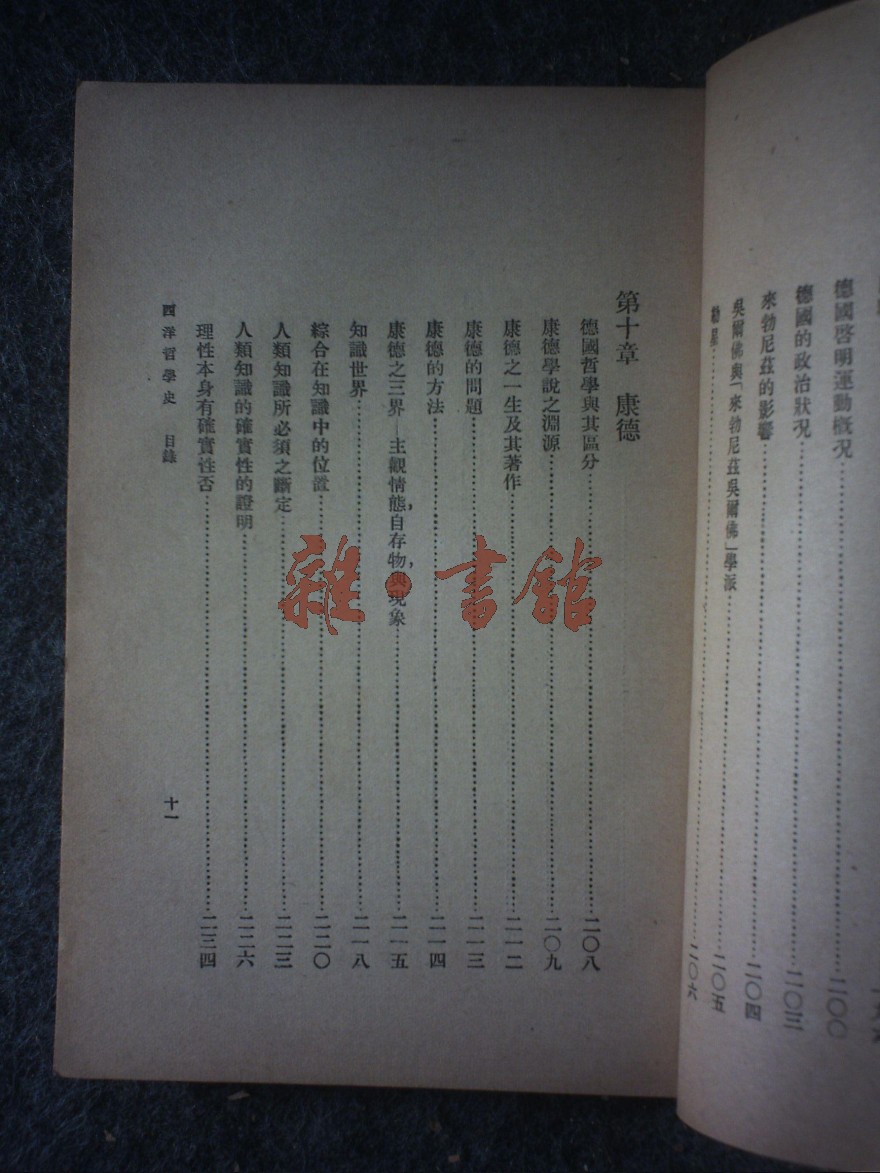 德國啓明運動概況……二〇〇
德國的政治狀況……二〇三
來勃尼茲的影響……二〇四
吳爾佛與「來勃尼茲吳爾佛」學派……二〇五
勒星……二〇六
第十章 康德
德國哲學與其區分……二〇八
康德學說之淵源……二〇九
康德之一生及其著作……二一二
康德的問題……二一三
康德的方法……二一四
康德之三界—主觀情態,自存物,與現象……二一五
知識世界……二一八
綜合在知識中的位置……二二〇
人類知識所必須之斷定……二二三
人類知識的確實性的證明……二二六
理性本身有確實性否……二三四
西洋哲學史 目錄 十一
雜·書館